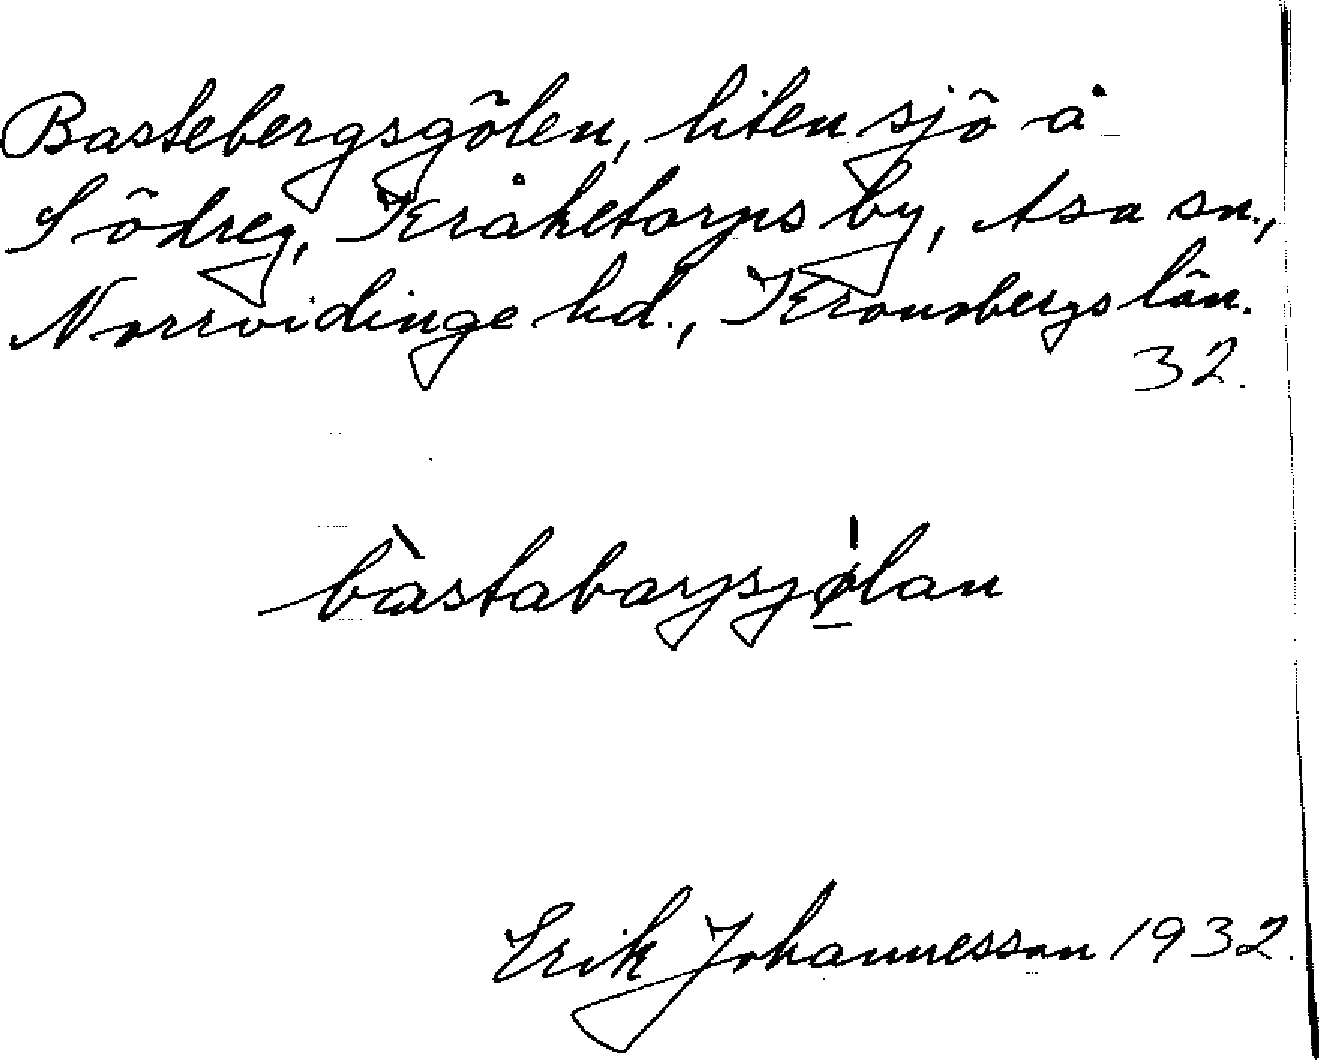 Bastebergsgölen, liten sjö å
Södreg, Kråketorps by, Asa sn.,
Norrvidinge hd., Kronobergs län.
32.
bàstabarjsjølan
Erik Johannesson 1932.